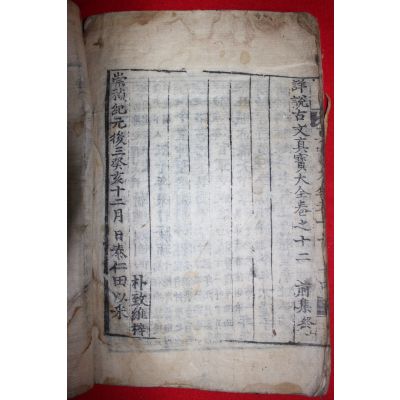 詳說古文真寶大全卷之十二　前集終
崇禎紀元後三癸亥十二月　日泰仁田以采
朴致維梓